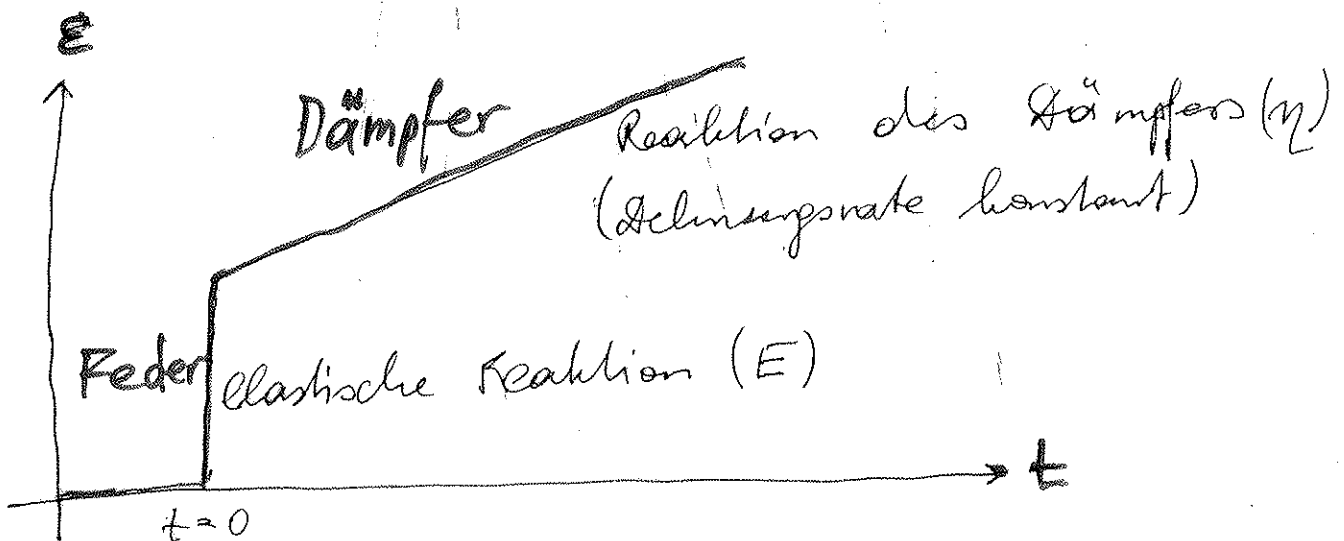 ε
Dämpfer
Reaktion des Dämpfers (η)
(Dehnungsrate konstant)
Feder
elastische Reaktion (E)
t
t = 0